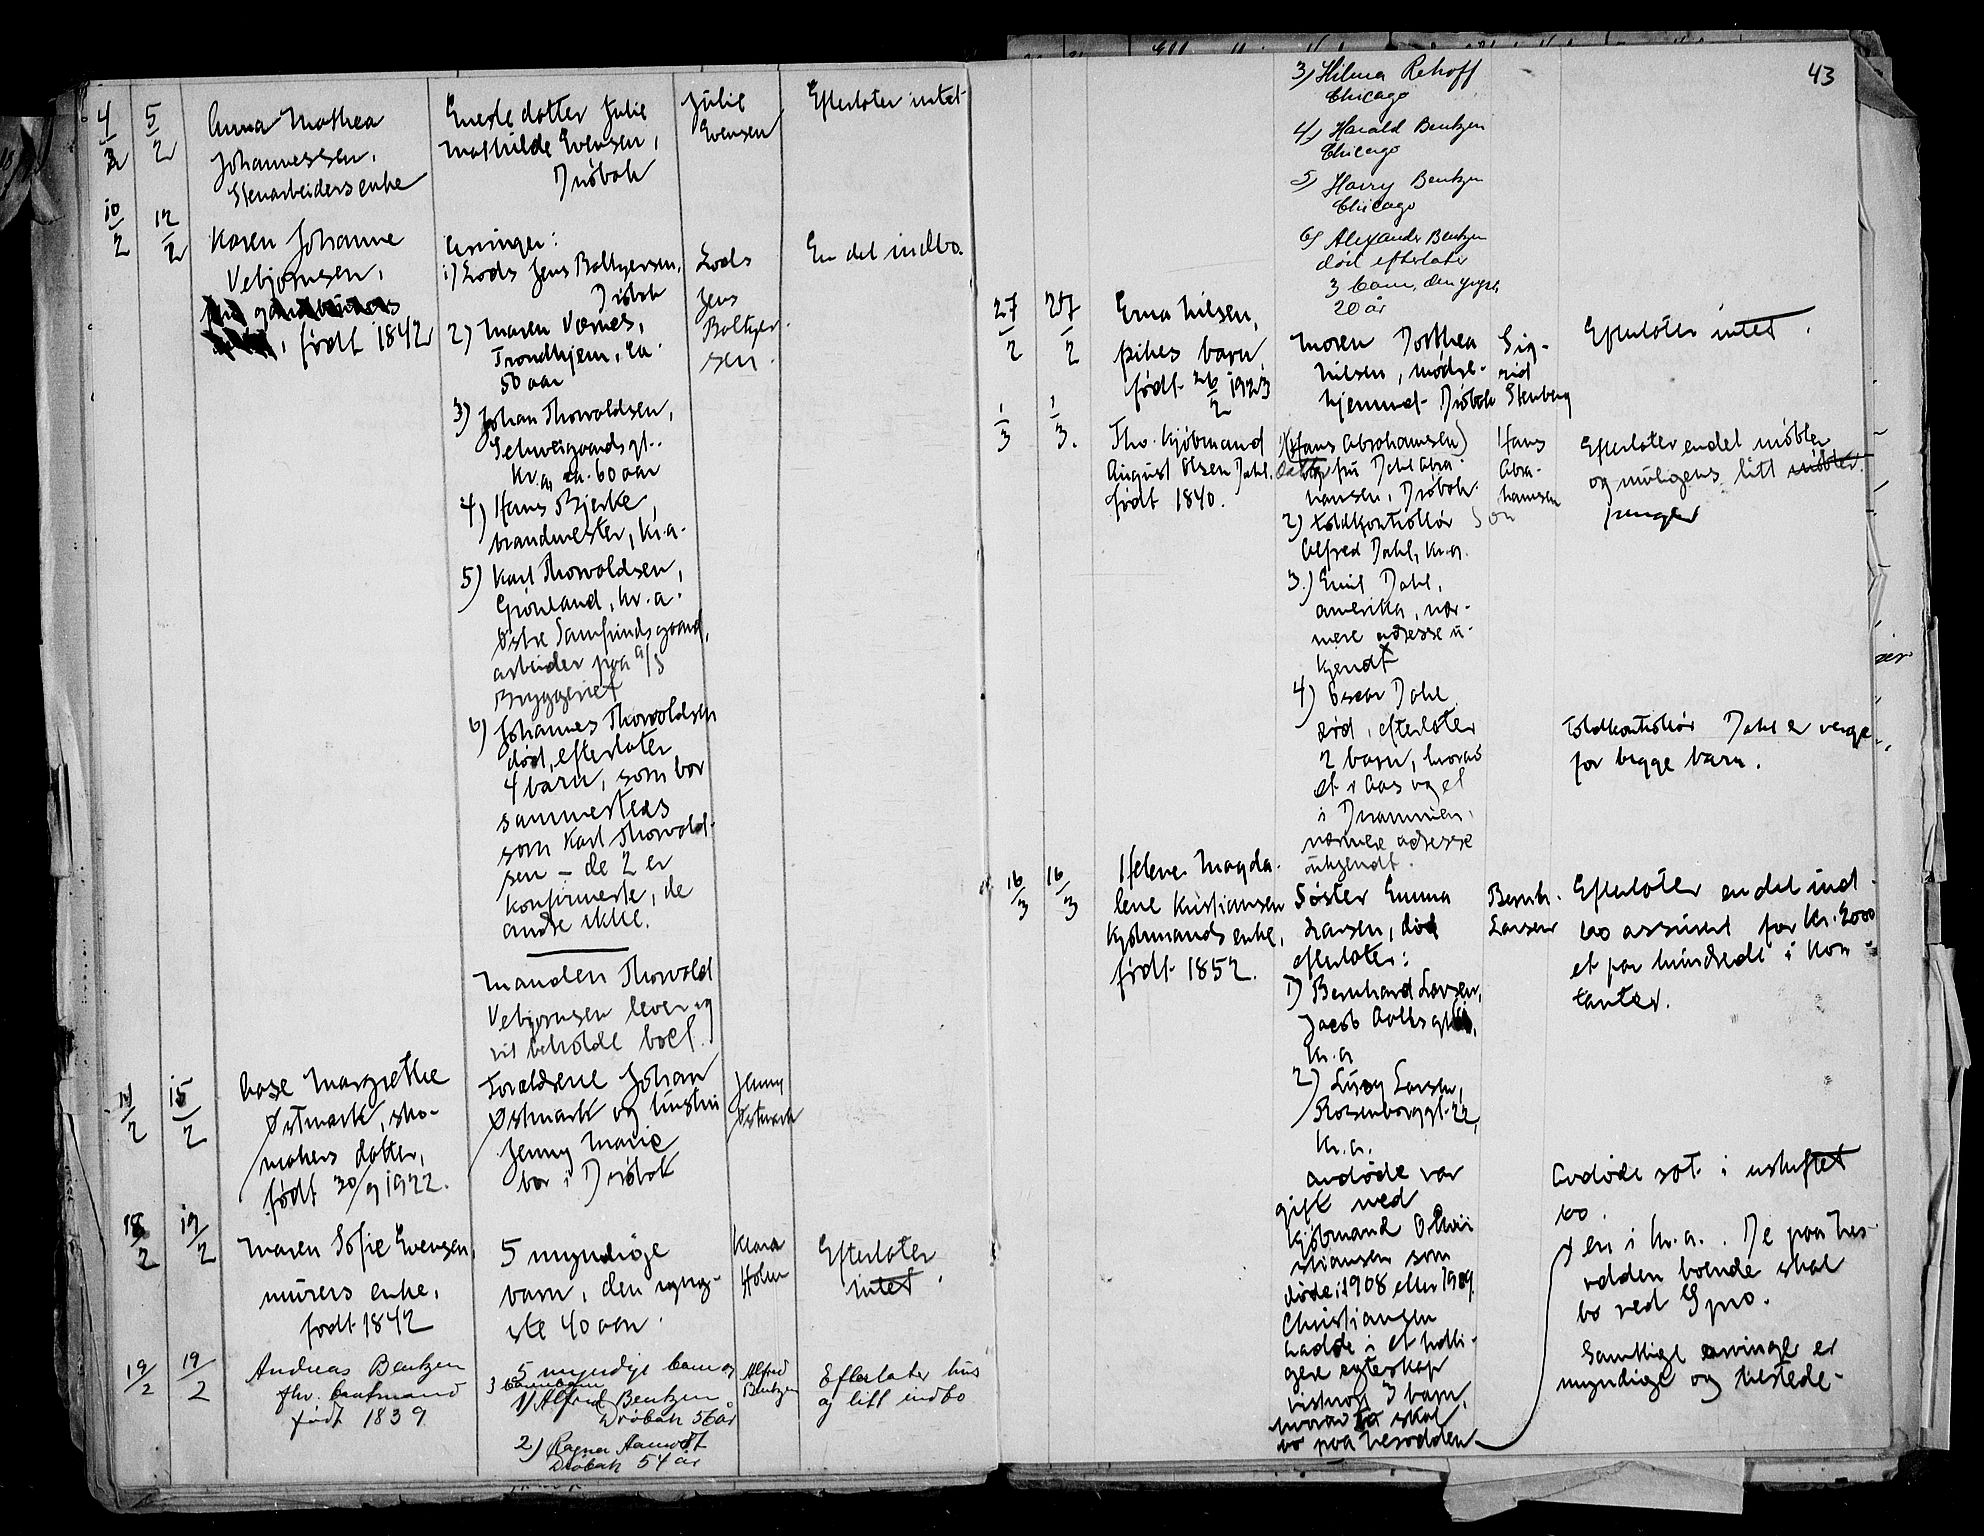 4/2 5/2 Anna Mathea Eneste datter Julie Julie Efterlater intet
Johannessen, Mathilde Evensen, Evensen
Stenarbeiders enke Drøbak
10/2 12/2 Karen Johanne Arvinger: Lods En del indbo.
Vebjørnsen, 1) Lods Jens Boltzersen, Jens
Drøbak
født 1842 2) Maren Værnes,
Trondhjem, ca.
50 aar
3) Johan Thorvaldsen,
Schweigaardsgt.
Kr.a, ca. 60 aar
4) Hans Bjerke,
brandmester, Kr.a.
5) Karl Thorvaldsen,
Grønland, Kr.a.
Østre
arbeider paa a/s
Bryggeriet
6) Johannes Thorvaldsen
død, efterlater
4 barn, som bor
sammesteds
som Karl Thorvald-
sen – de 2 er
konfirmerte, de
andre ikke.
Manden Thorvald
Vebjørnsen lever og
vil beholde boet.
14/2 15/2 Aase Margrethe Forældrene Johan Jenny
Østmark, sko- Østmark og hustru Østmark
makers datter, Jenny Marie
født 30/9 1922. bor i Drøbak
18/2 19/2 Maren Sofie Evensen, 5 myndige Klara Efterlater
murers enke, barn, den yng- Holm intet.
født 1842 ste 40 aar.
19/2 19/2 Andreas Bentzen 5 myndige barn og Alfred Efterlater hus
fhv. kaufmand 3 barnebarn Bentzen og litt indbo
født 1839 1) Alfred Bentzen
Drøbak 56 år
2) Ragna Aamodt
Drøbak 54 år
43
3) Hilma Rehoff
Chicago
4) Harald Bentzen
Chicago
5) Harry Bentzen
Chicago
6) Alexander Bentzen
død efterlater
3 barn, den yngste
20 år
27/2 27/2 Erna Nilsen, Moren Dorthea Sig- Efterlater intet.
pikes barn Nilsen, mødre- rid
født 26/2 1923 hjemmet Drøbak Stenberg
1/3 1/3. Fhv. kjøbmand 1) (Hans Abrahamsen) Hans Efterlater endel møbler
August Olsen Dahl. Datter fru Dahl Abra- Abra- og muligens litt møbler.
født 1840. hamsen, Drøbak hamsen penger
2) Toldkontrollør Søn
Alfred Dahl, Kr.a.
3.) Emil Dahl,
Amerika, nær-
mere adresse u-
kjendt
4) Oscar Dahl
død, efterlater Toldkontrollør Dahl er verge
2 barn, hvorav for begge barn.
et i Aas og et
i Drammen,
nærmere adresse
ukjendt.
16/3 16/3 Helene Magda- Søster Emma Bernh. Efterlater endel ind-
lene Kristiansen Larsen, død Larsen bo assurert for Kr. 2000
kjøbmands enke, efterlater: et par hundrede i kon-
født 1852. 1) Bernhard Larsen, tanter.
Jacob Aallsgt
Kr.a
2) Lucy Larsen,
Rosenborggt. 22,
Kr.a.
Avdøde var Avdøde sat i uskiftet
gift med bo.
kjøbmand O. Chri-
stiansen som
døde i 1908 eller 1909.
Christiansen
hadde i et tidli-
gere egteskap
vistnok 3 barn,
hvorav to skal
bo paa Nesodden
en i Kr.a. De paa Nes-
odden boende skal
bo ved Spro.
Samtlige arvinger er
myndige og tilstede-